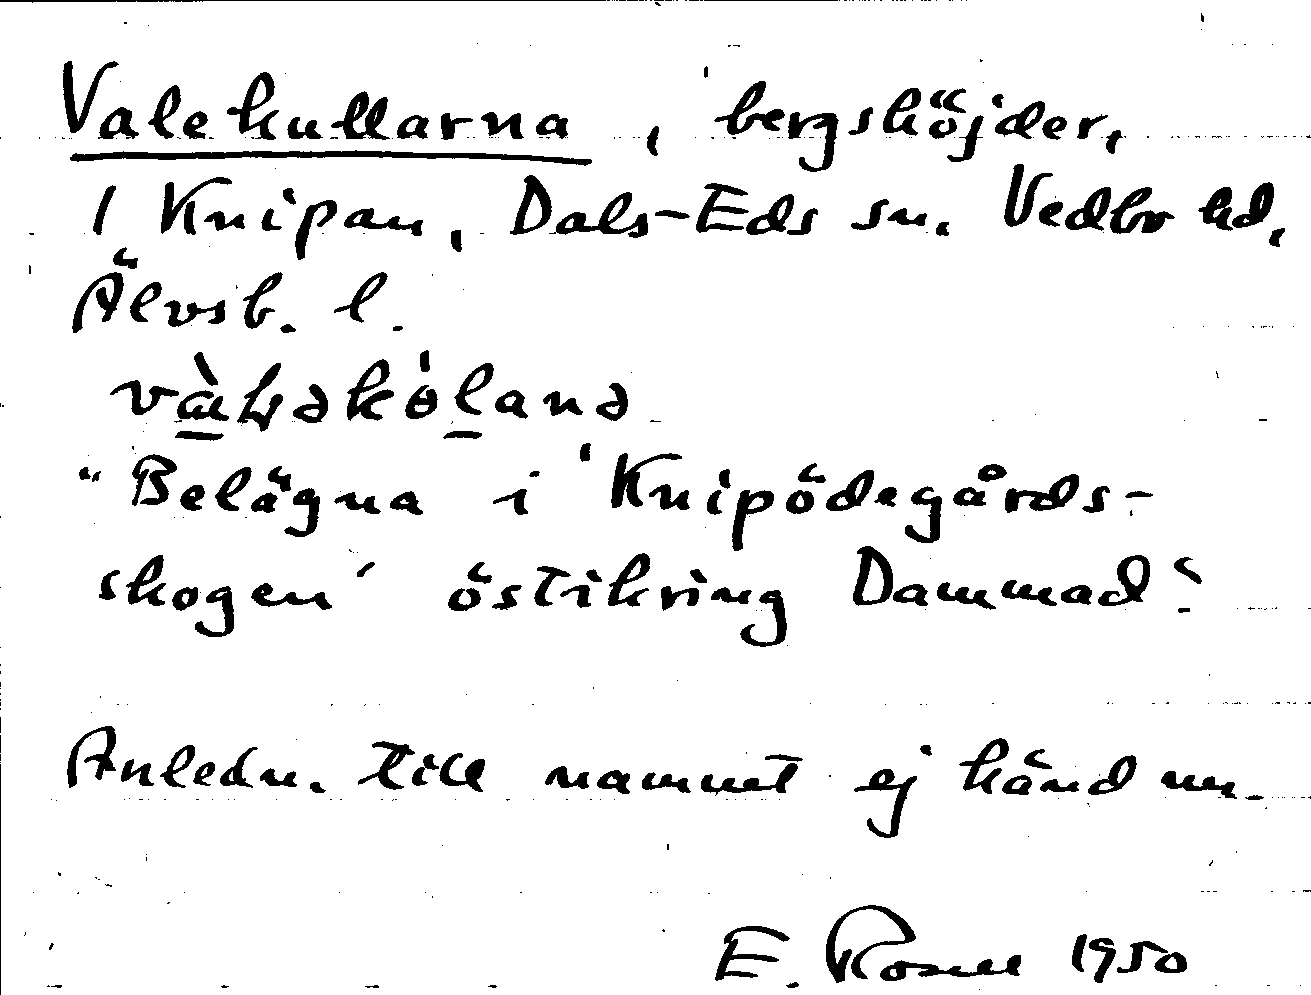 Valekullarna, bergshöjder,
1 Knipan, Dals-Eds sn. Vedbo hd,
Älvsb. l.
"Belägna i 'Knipödegårds-
skogen' östikring Dammad".
Anledn. till namnet ej känd nu.
E. Rosell 1950